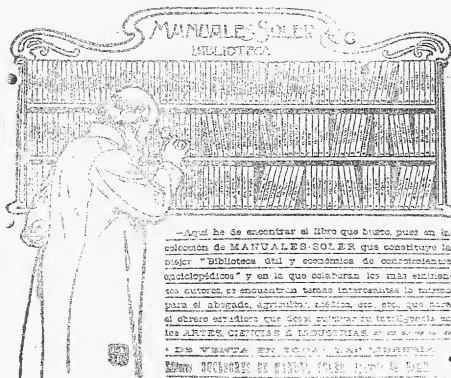 MANUALES-SOLER
BIBLIOTECA
—Aquí he de encontrar el libro que busco, pues en la
colección de MANUALES-SOLER que constituye la
mejor "Biblioteca útil y económica de conocimientos
enciclopédicos" y en la que colaboran los más eminen-
tes autores, se encuentran tomos interesantes lo mismo
para el abogado, agricultor, médico, etc. etc. que para
el obrero estudioso que desee cultivar su inteligencia en
las ARTES, CIENCIAS É INDUSTRIAS.
DE VENTA EN TODAS LAS LIBRERÍAS
SUCESORES DE MANUEL SOLER